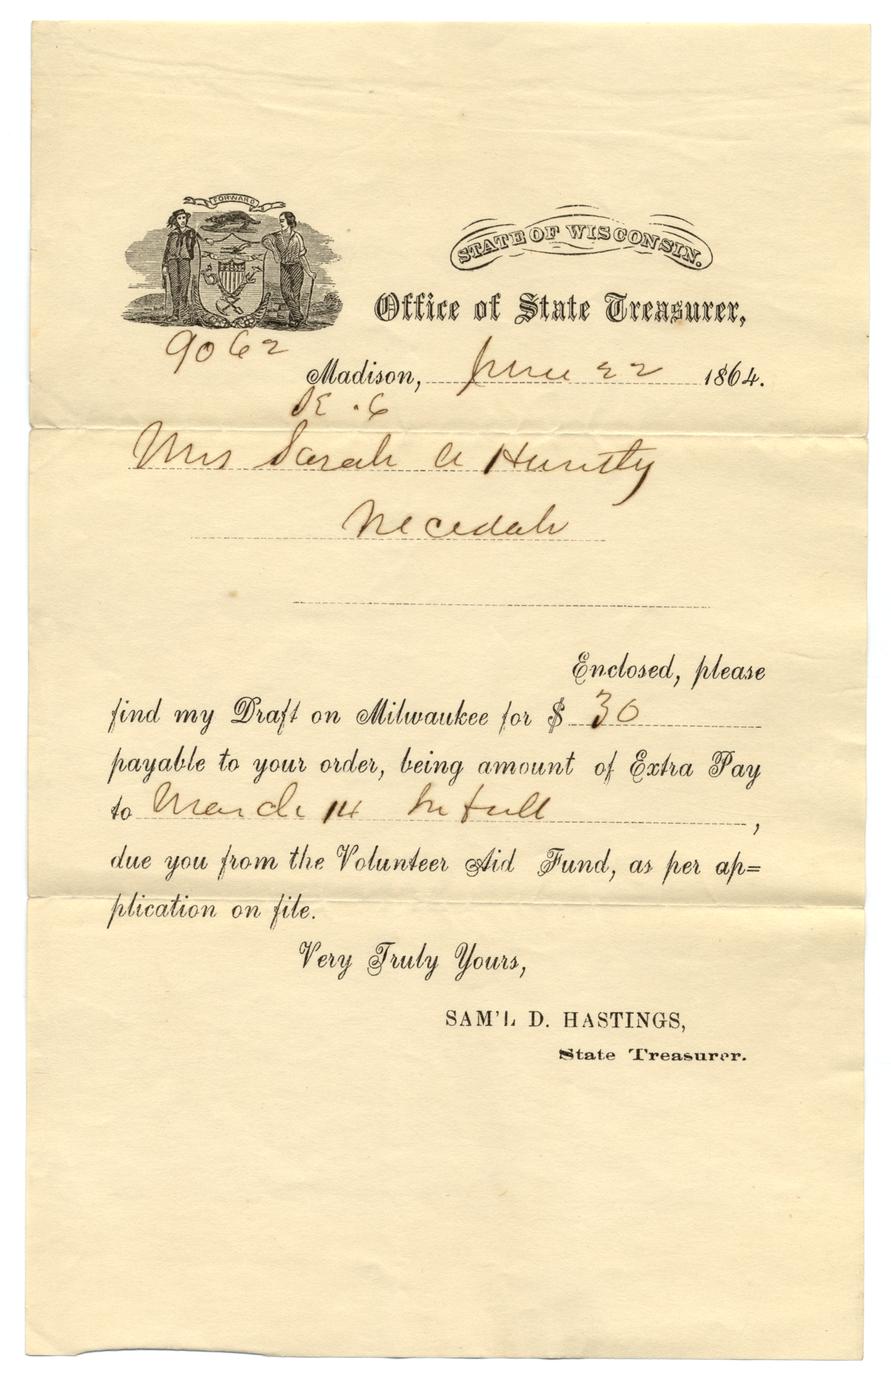 FORWARD
STATE OF WISCONSIN.
Office of State Treasurer,
9062
Madison, June 22 1864.
Mrs Sarah A Huntly
Necedah
Enclosed, please
find my Draft on Milwaukee for $ 30
payable to your order, being amount of Extra Pay
to March 14 In full,
due you from the Volunteer Aid Fund, as per ap=
plication on file.
Very Truly Yours,
SAM'L D. HASTINGS,
State Treasurer.